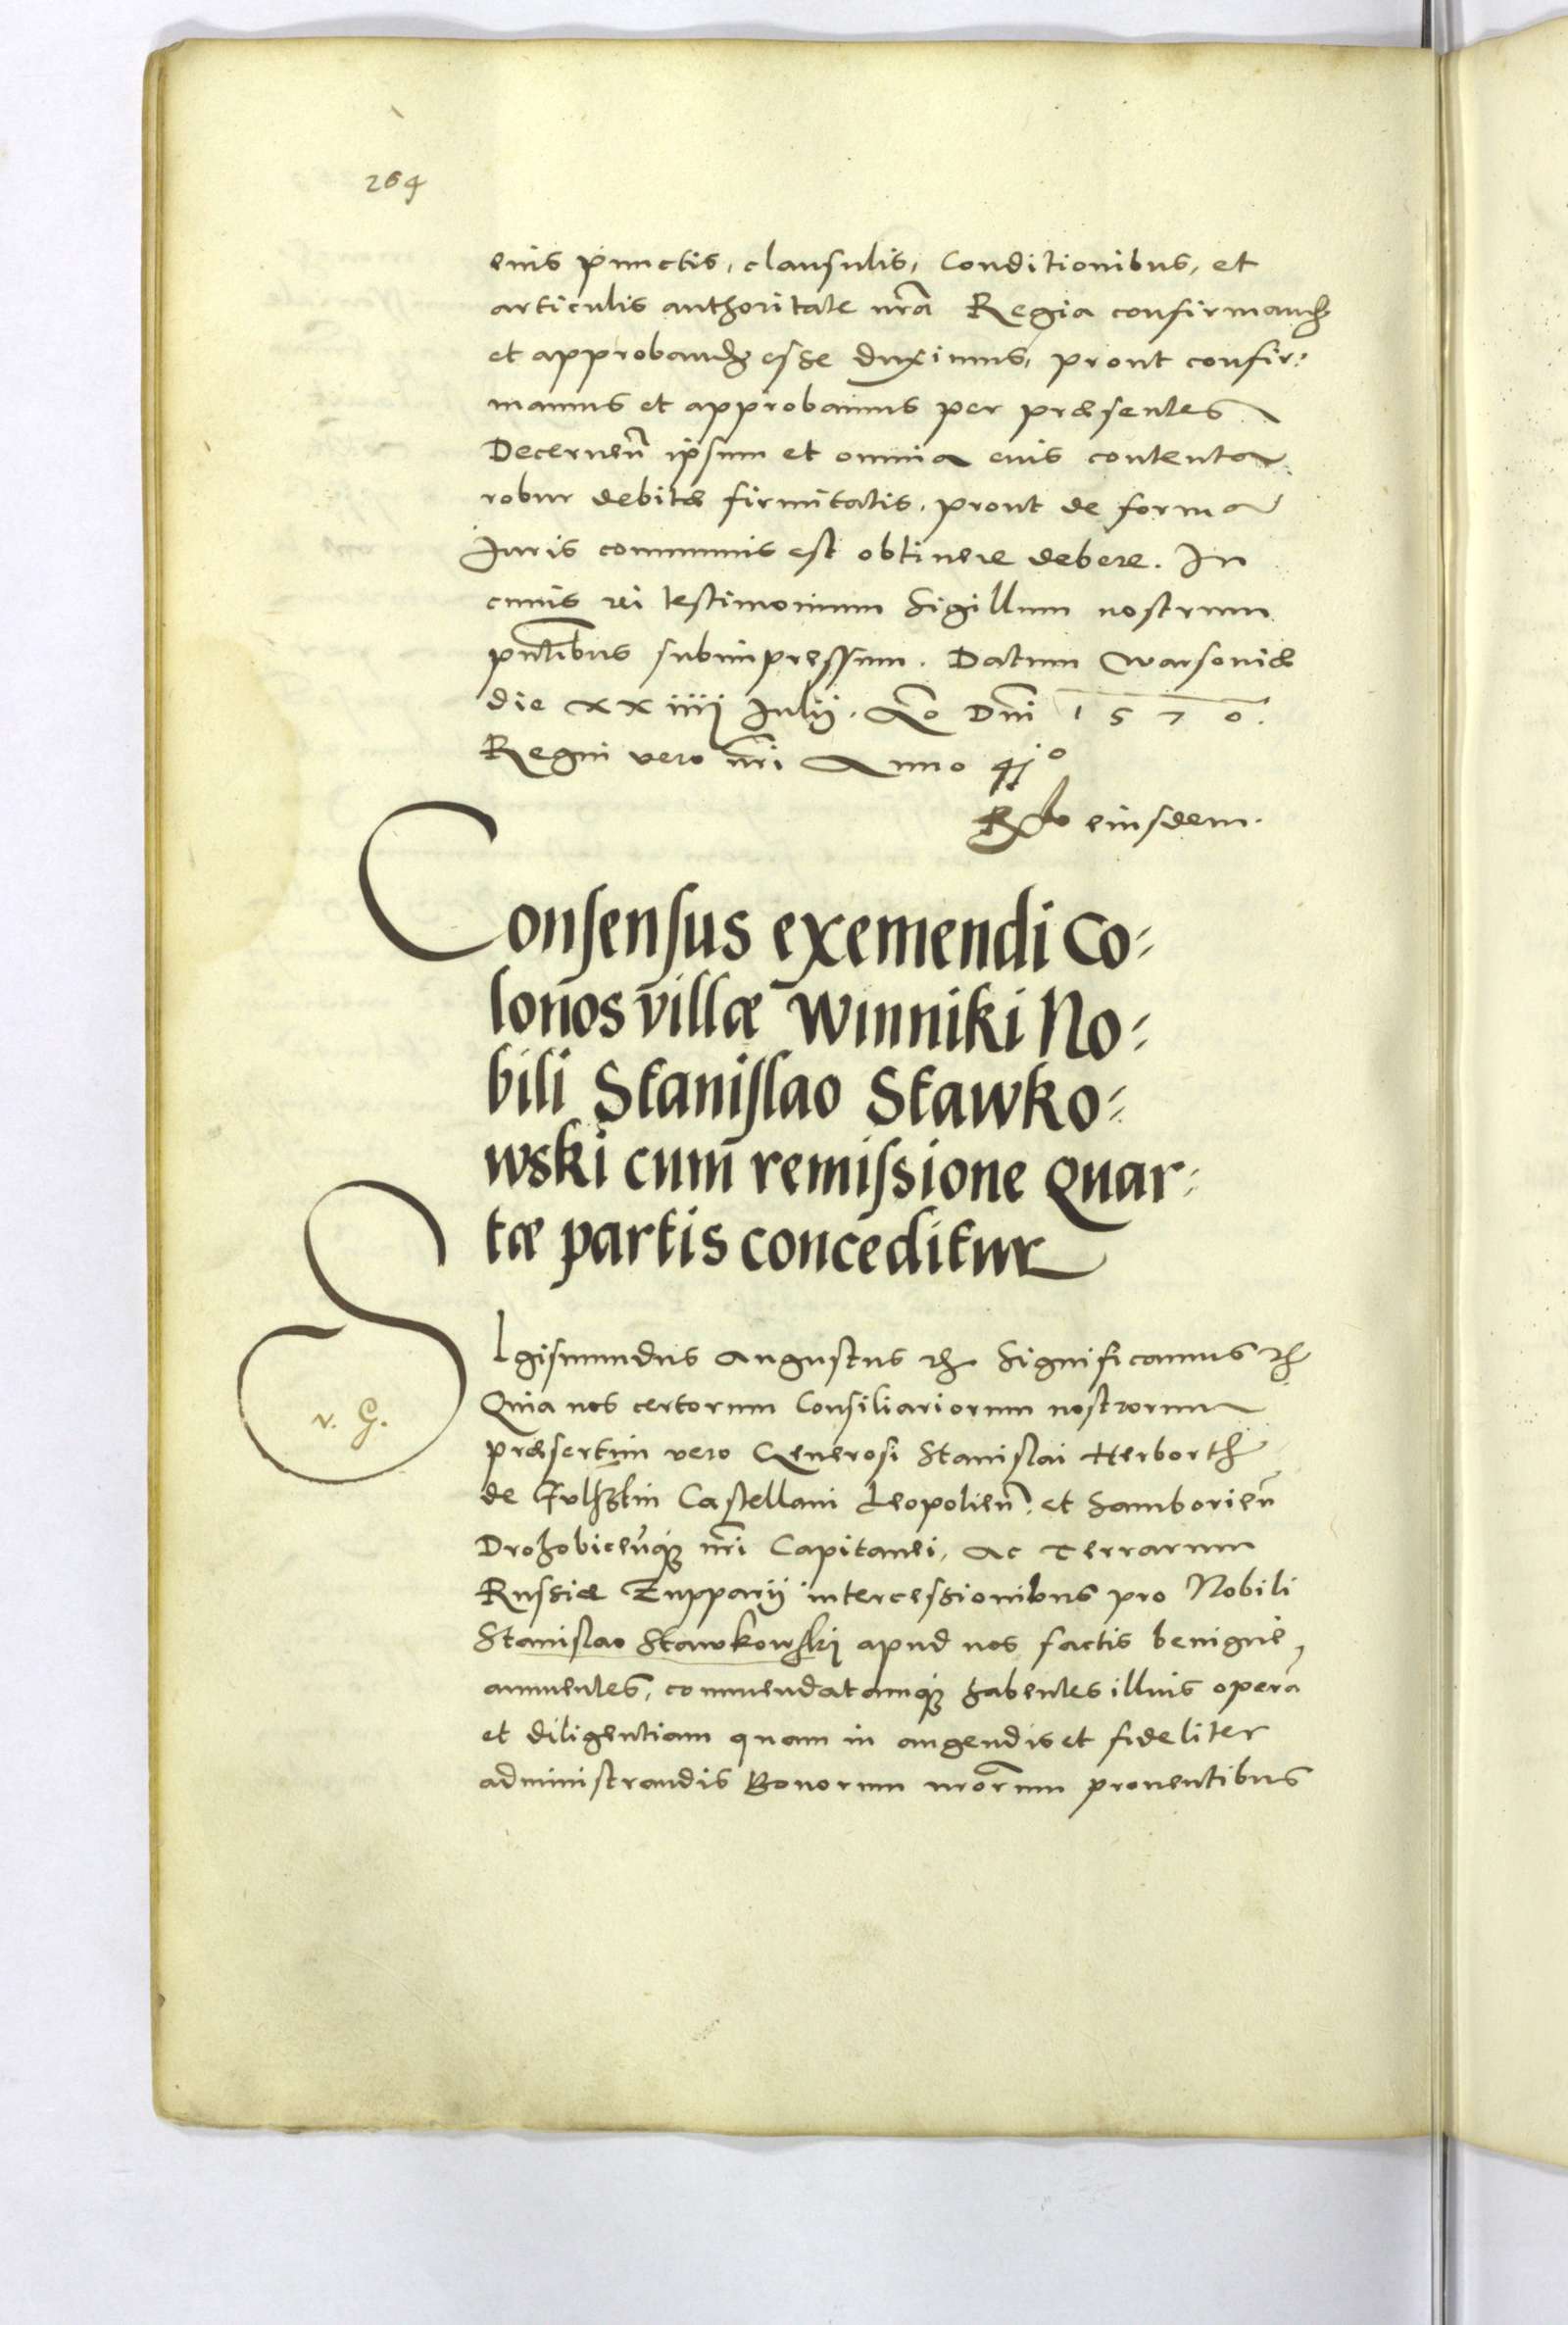 264
euis punctis, clausulis, Conditionibus, et
articulis authoritate nrã Regia confirmand
et approband esse duximus, prout confir:
mamus et approbamus per præsentes
Decernen̄ ipsum et omnia euis contenta
robur debitæ firmitatis, prout de forma
Juris communis est obtinere debere. In
cuuis rei testimonium Sigillum nostrum
pñtibus subimpressum. Datum Warsouiæ
die XXiiij Julij. Ao Dni 1570.
Regni vero nri Anno 41º
Rlo eiusdem.
Consensus exemendi Co:
lonos villæ Winniki No:
bili Stanislao Stawko:
wski cum remissione Quar:
tæ partis conceditur
SIgismundus Augustus Significamus
Quia nos certorum Consiliariorum nostrorum
præsertim vero Generosi Stanislai Herborth
de Fulsstin Castellani Leopolien̄. et Samborien̄
Drohobicen̄q; nri Capitanei, Ac Terrarum
Russiæ Zupparij intercessionibus pro Nobili
Stanislao Stawkowskj apud nos factis benigne
annuentes, commendatamq; habentes illuis operã
v. G.
et diligentiam quam in augendis et fideliter
administrandis Bonorum nrorum prouentibus